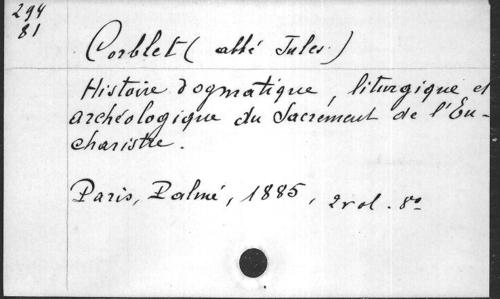 294
81
Corblet (abbé Jules.)
Histoire dogmatique, liturgique et
archéologique du Sacrement de l'Eu-
charistie.
Paris, Palmé, 1885, 2 vol. 8º